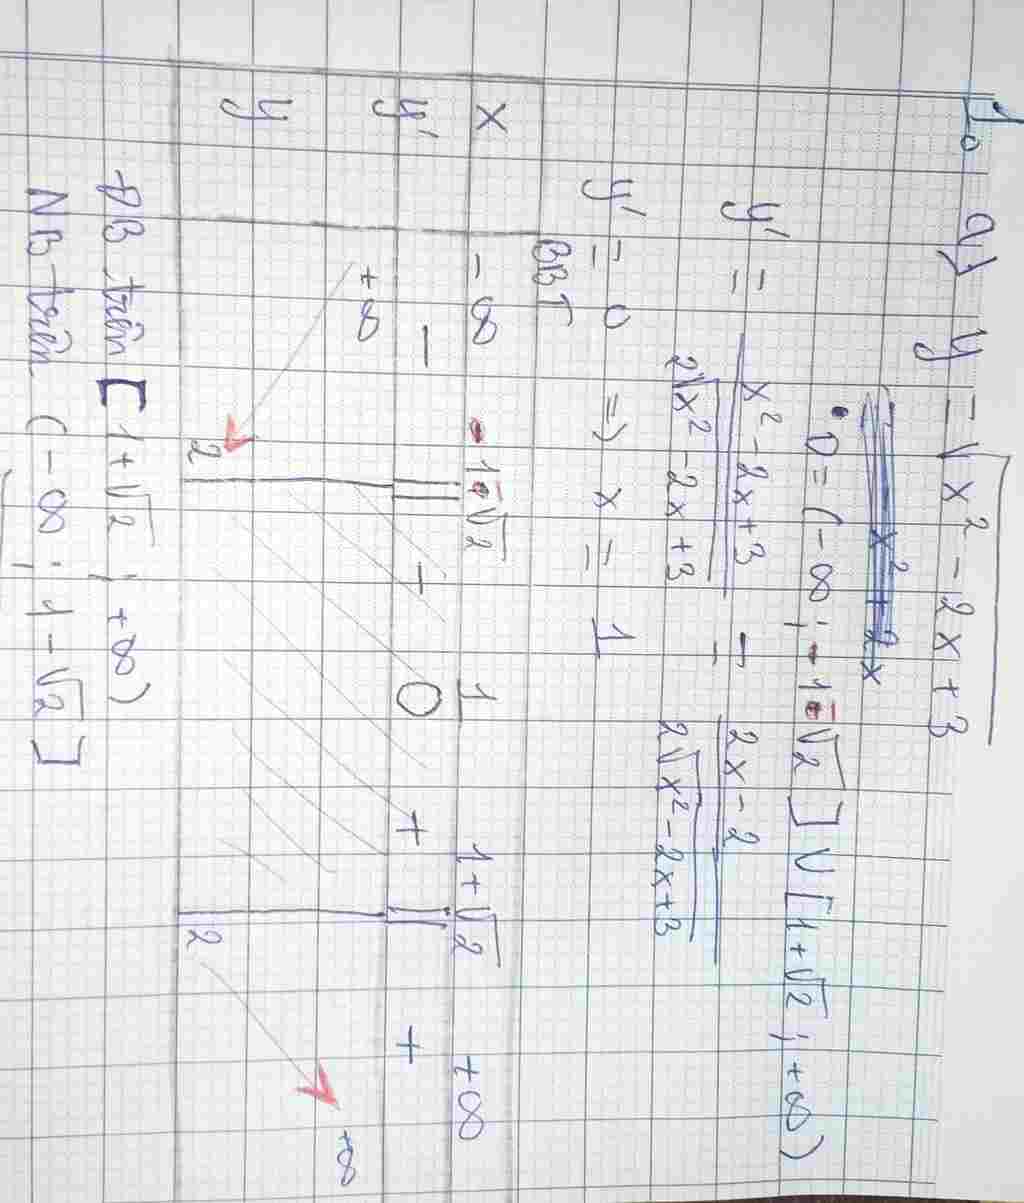 1. a) y = √x² - 2x + 3
• D = (-∞ ; 1-√2] ∪ [1+√2 ; +∞)
y' = x² - 2x + 3 / 2√x² - 2x + 3 = 2x - 2 / 2√x² - 2x + 3
y' = 0 => x = 1
BBT
x -∞ 1-√2 1 1+√2 +∞
y' - || - 0 + || +
y +∞ 2 2 +∞
ĐB trên [1+√2 ; +∞)
NB trên (-∞ ; 1-√2]